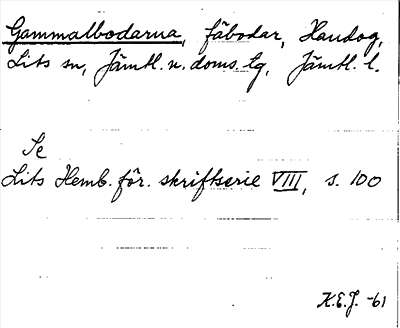 Gammalbodarna, fäbodar, Handog,
Lits sn, Jämtl. n. doms. tg, Jämtl. l.
Se
Lits Hemb. för. skriftserie VIII, s. 100
K.E.J. -61